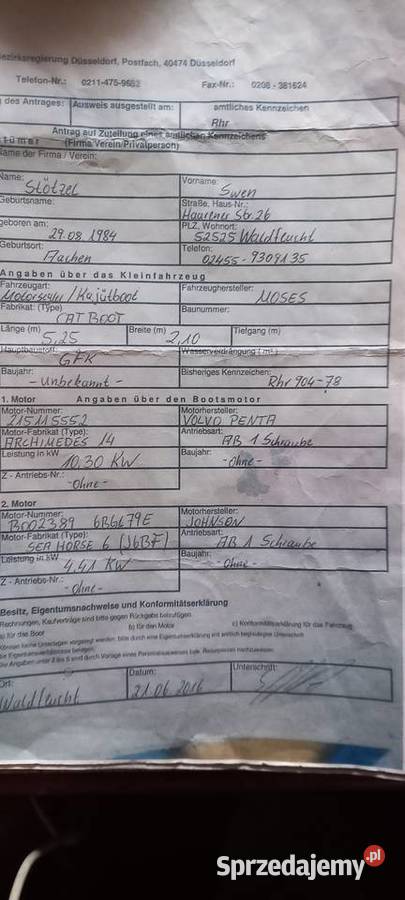 ezirksregierung Düsseldorf, Postfach, 40474 Düsseldorf
Telefon-Nr.: 0211-475-9653 Fax-Nr.: 0208-381624
g des Antrages: Ausweis ausgestellt am: amtliches Kennzeichen
Rhr
Antrag auf Zuteilung eines amtlichen Kennzeichens
tümer (Firma/Verein/Privatperson)
Name der Firma / Verein:
Name: Vorname:
Stötzel Swen
Geburtsname: Straße, Haus-Nr.:
Haarener Str. 26
geboren am: PLZ, Wohnort:
29.08.1984 52525 Waldfeucht
Geburtsort: Telefon:
Aachen 02455-9309135
Angaben über das Kleinfahrzeug
Fahrzeugart: Fahrzeughersteller:
Motorsegler / Kajütboot MOSES
Fabrikat: (Type) Baunummer:
CATBOOT
Länge (m) Breite (m) Tiefgang (m)
5,25 2,10
Hauptbaustoff: Wasserverdrängung (m³)
GFK
Baujahr: Bisheriges Kennzeichen:
- Unbekannt - Rhr 904-78
1. Motor Angaben über den Bootsmotor
Motor-Nummer: Motorhersteller:
215115552 VOLVO PENTA
Motor-Fabrikat (Type): Antriebsart:
ARCHIMEDES 14 AB 1 Schraube
Leistung in kW Baujahr:
10,30 KW -ohne-
Z - Antriebs-Nr.:
-ohne-
2. Motor
Motor-Nummer: Motorhersteller:
B002389 6B6L79E JOHNSON
Motor-Fabrikat (Type): Antriebsart:
SEA HORSE 6 (J6BF) AB 1 Schraube
Leistung in kW Baujahr:
4,41 KW -ohne-
Z - Antriebs-Nr.:
-ohne-
Besitz, Eigentumsnachweise und Konformitätserklärung
Rechnungen, Kaufverträge sind bitte gegen Rückgabe beizufügen
a) für das Boot b) für den Motor c) Konformitätserklärung für das Fahrzeug
Ort: Datum: Unterschrift:
Waldfeucht 21.06.2016
Sprzedajemy.pl